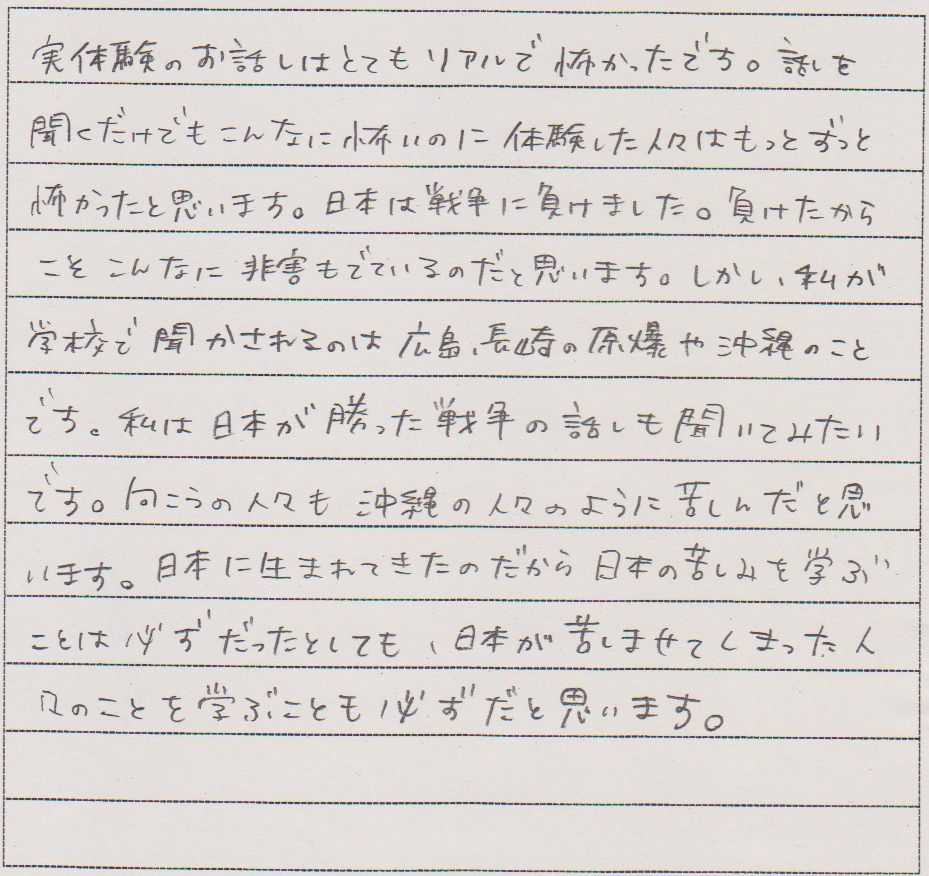 実体験のお話しはとてもリアルで怖かったです。話しを
聞くだけでもこんなに怖いのに体験した人々はもっとずっと
怖かったと思います。日本は戦争に負けました。負けたから
こそこんなに非害もでているのだと思います。しかし、私が
学校で聞かされるのは広島、長崎の原爆や沖縄のこと
です。私は日本が勝った戦争の話しも聞いてみたい
です。向こうの人々も沖縄の人々のように苦しんだと思
います。日本に生まれてきたのだから日本の苦しみを学ぶ
ことは必ずだったとしても、日本が苦しませてしまった人
々のことを学ぶことも必ずだと思います。